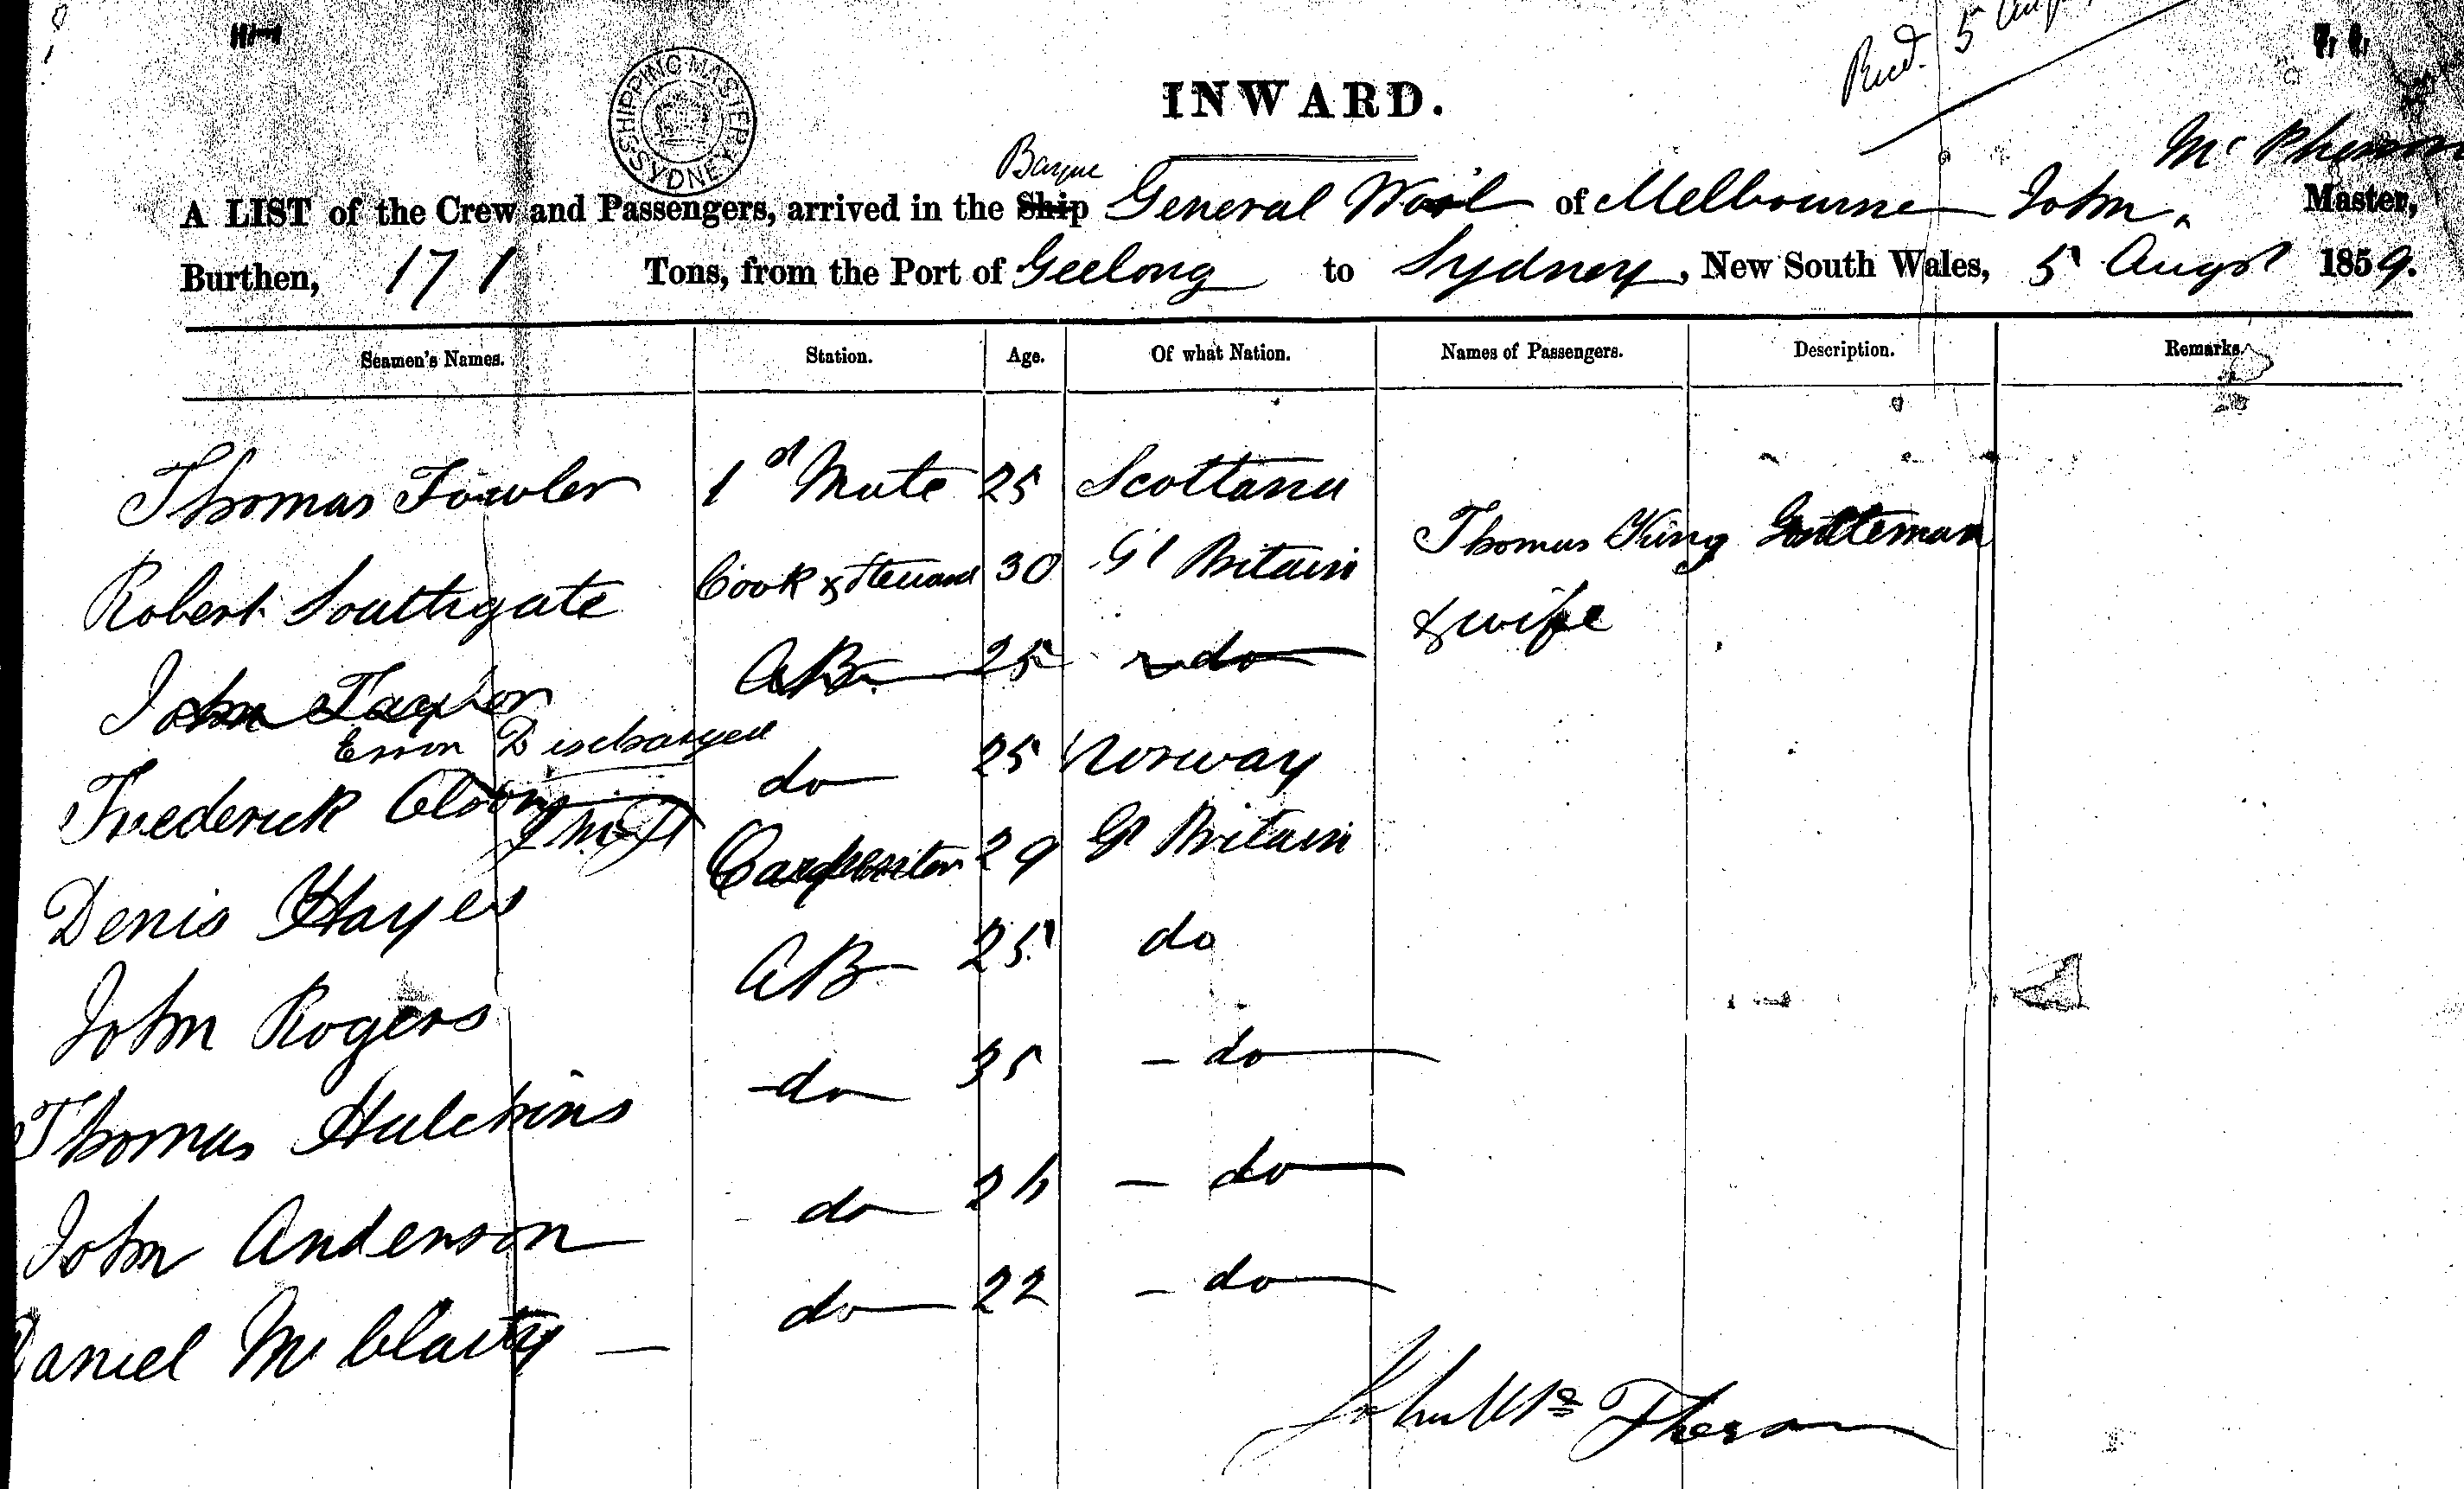 Recd. 5 Aug
INWARD.
SHIPPING MASTER SYDNEY
Mc Pherson
Barque
A LIST of the Crew and Passengers, arrived in the Ship General of Melbourne John Master,
Burthen, 171 Tons, from the Port of Geelong to Sydney, New South Wales, 5 Augst 1859.
Seamen's Names. Station. Age. Of what Nation. Names of Passengers. Description. Remarks.
Thomas Fowler 1st Mate 25 Scotland Thomas King Gentleman
Robert Southgate Cook & Steward 30 Gt Britain & wife
John Taylor AB 25 do
Error Discharged
Frederick Olsen do 25 Norway
Denis Hayes Carpenter 29 Gt Britain
John Rogers AB 25 do
Thomas Hutchins do 35 - do
John Anderson do 26 - do
Daniel Mc Clarty - do 22 - do
John McPherson